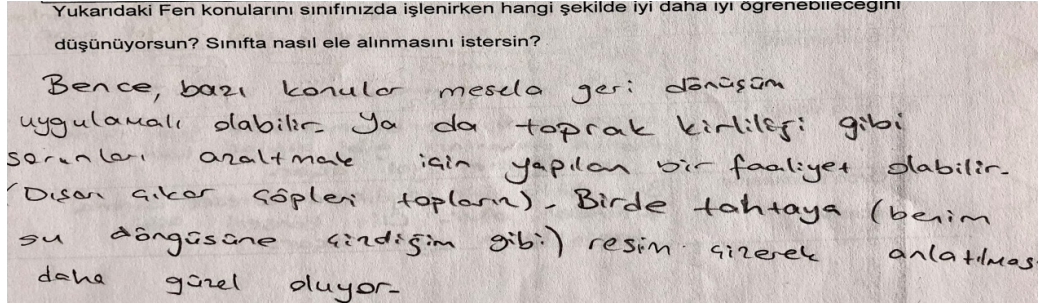 Yukarıdaki Fen konularını sınıfınızda işlenirken hangi şekilde iyi daha iyi öğrenebileceğini
düşünüyorsun? Sınıfta nasıl ele alınmasını istersin?
Bence, bazı konular mesela geri dönüşüm
uygulamalı olabilir. Ya da toprak kirliliği gibi
sorunları azaltmak için yapılan bir faaliyet olabilir.
(Dışarı çıkar çöpleri toplarız). Birde tahtaya (benim
su döngüsüne çizdiğim gibi) resim çizerek anlatılmas
daha güzel oluyor.